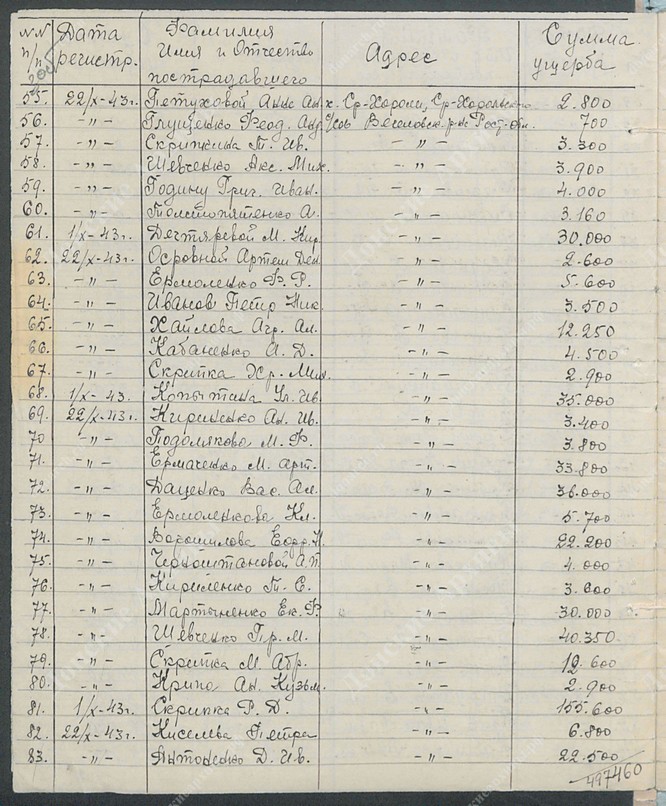 №№ п/п Дата регистр. Фамилия Имя и Отчество пострадавшего Адрес Сумма ущерба
55. 22/X-43г. Петуховой Анне Ан. х. Ср-Хороли, Ср-Хорольского 2.800
56. -"- Глущенко Феод. Анд. с/сов Веселовск. р-на Рост-обл. 700
57. -"- Скрипкина Т. Ив. -"- 3.300
58. -"- Шевченко Акс. Мих. -"- 3.900
59. -"- Годину Григ. Иван. -"- 4.000
60. -"- Толстопятенко А. -"- 3.160
61. 1/X-43г. Дегтяревой М. Кир. -"- 30.000
62. 22/X-43г. Артем -"- 2.600
63. -"- Ермоленко Ф. Р. -"- 5.600
64. -"- Иванов Петр Ник. -"- 3.500
65. -"- Хайлова Агр. Ал. -"- 12.250
66. -"- Кабаненко А. Д. -"- 4.500
67. -"- Скрипка Хр. Мих. -"- 2.900
68. 1/X-43. Копытина Ул. Ив. -"- 35.000
69. 22/X-43г. Кириленко Ан. Ив. -"- 3.400
70 -"- Подолякова М. Ф. -"- 3.800
71. -"- Ермаченко М. Арт. -"- 33.800
72. -"- Даценко Вас. Ал. -"- 36.000
73. -"- Ермоленкова Кл. -"- 5.700
74. -"- Ворошилова -"- 22.200
75. -"- Черноштановой А.П. -"- 4.000
76. -"- Кириленко Т. С. -"- 3.600
77. -"- Мартыненко Ек. Ф. -"- 30.000
78. -"- Шевченко Пр. М. -"- 40.350
79. -"- Скрипка М. Абр. -"- 12.600
80. -"- Ан. Кузьм. -"- 2.900
81. 1/X-43г. Скрипка Р. Д. -"- 155.600
82. 22/X-43г. Киселева Петра -"- 6.800
83. -"- Антоненко Д. Ив. -"- 22.500
497460